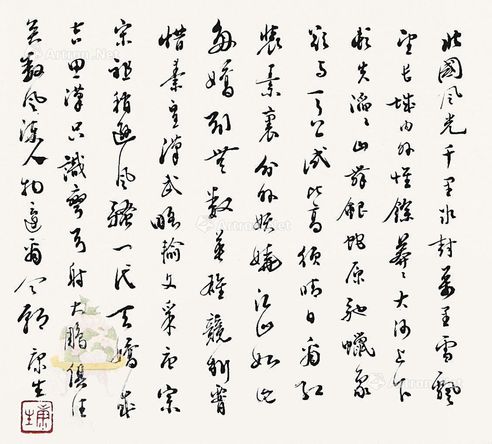 北國风光千里冰封萬里雪飄
望長城内外惟餘莽〻大河上下
頓失滔〻山舞銀蛇原馳蠟象
欲与天公試比高須晴日看紅
裝素裹分外妖嬈江山如此
多嬌引無數英雄競折腰
惜秦皇漢武略輸文采唐宗
宋祖稍遜风騷一代天驕成
吉思漢只識彎弓射大鵰俱往
矣數风流人物還看今朝 康生
康生
Artron.Net